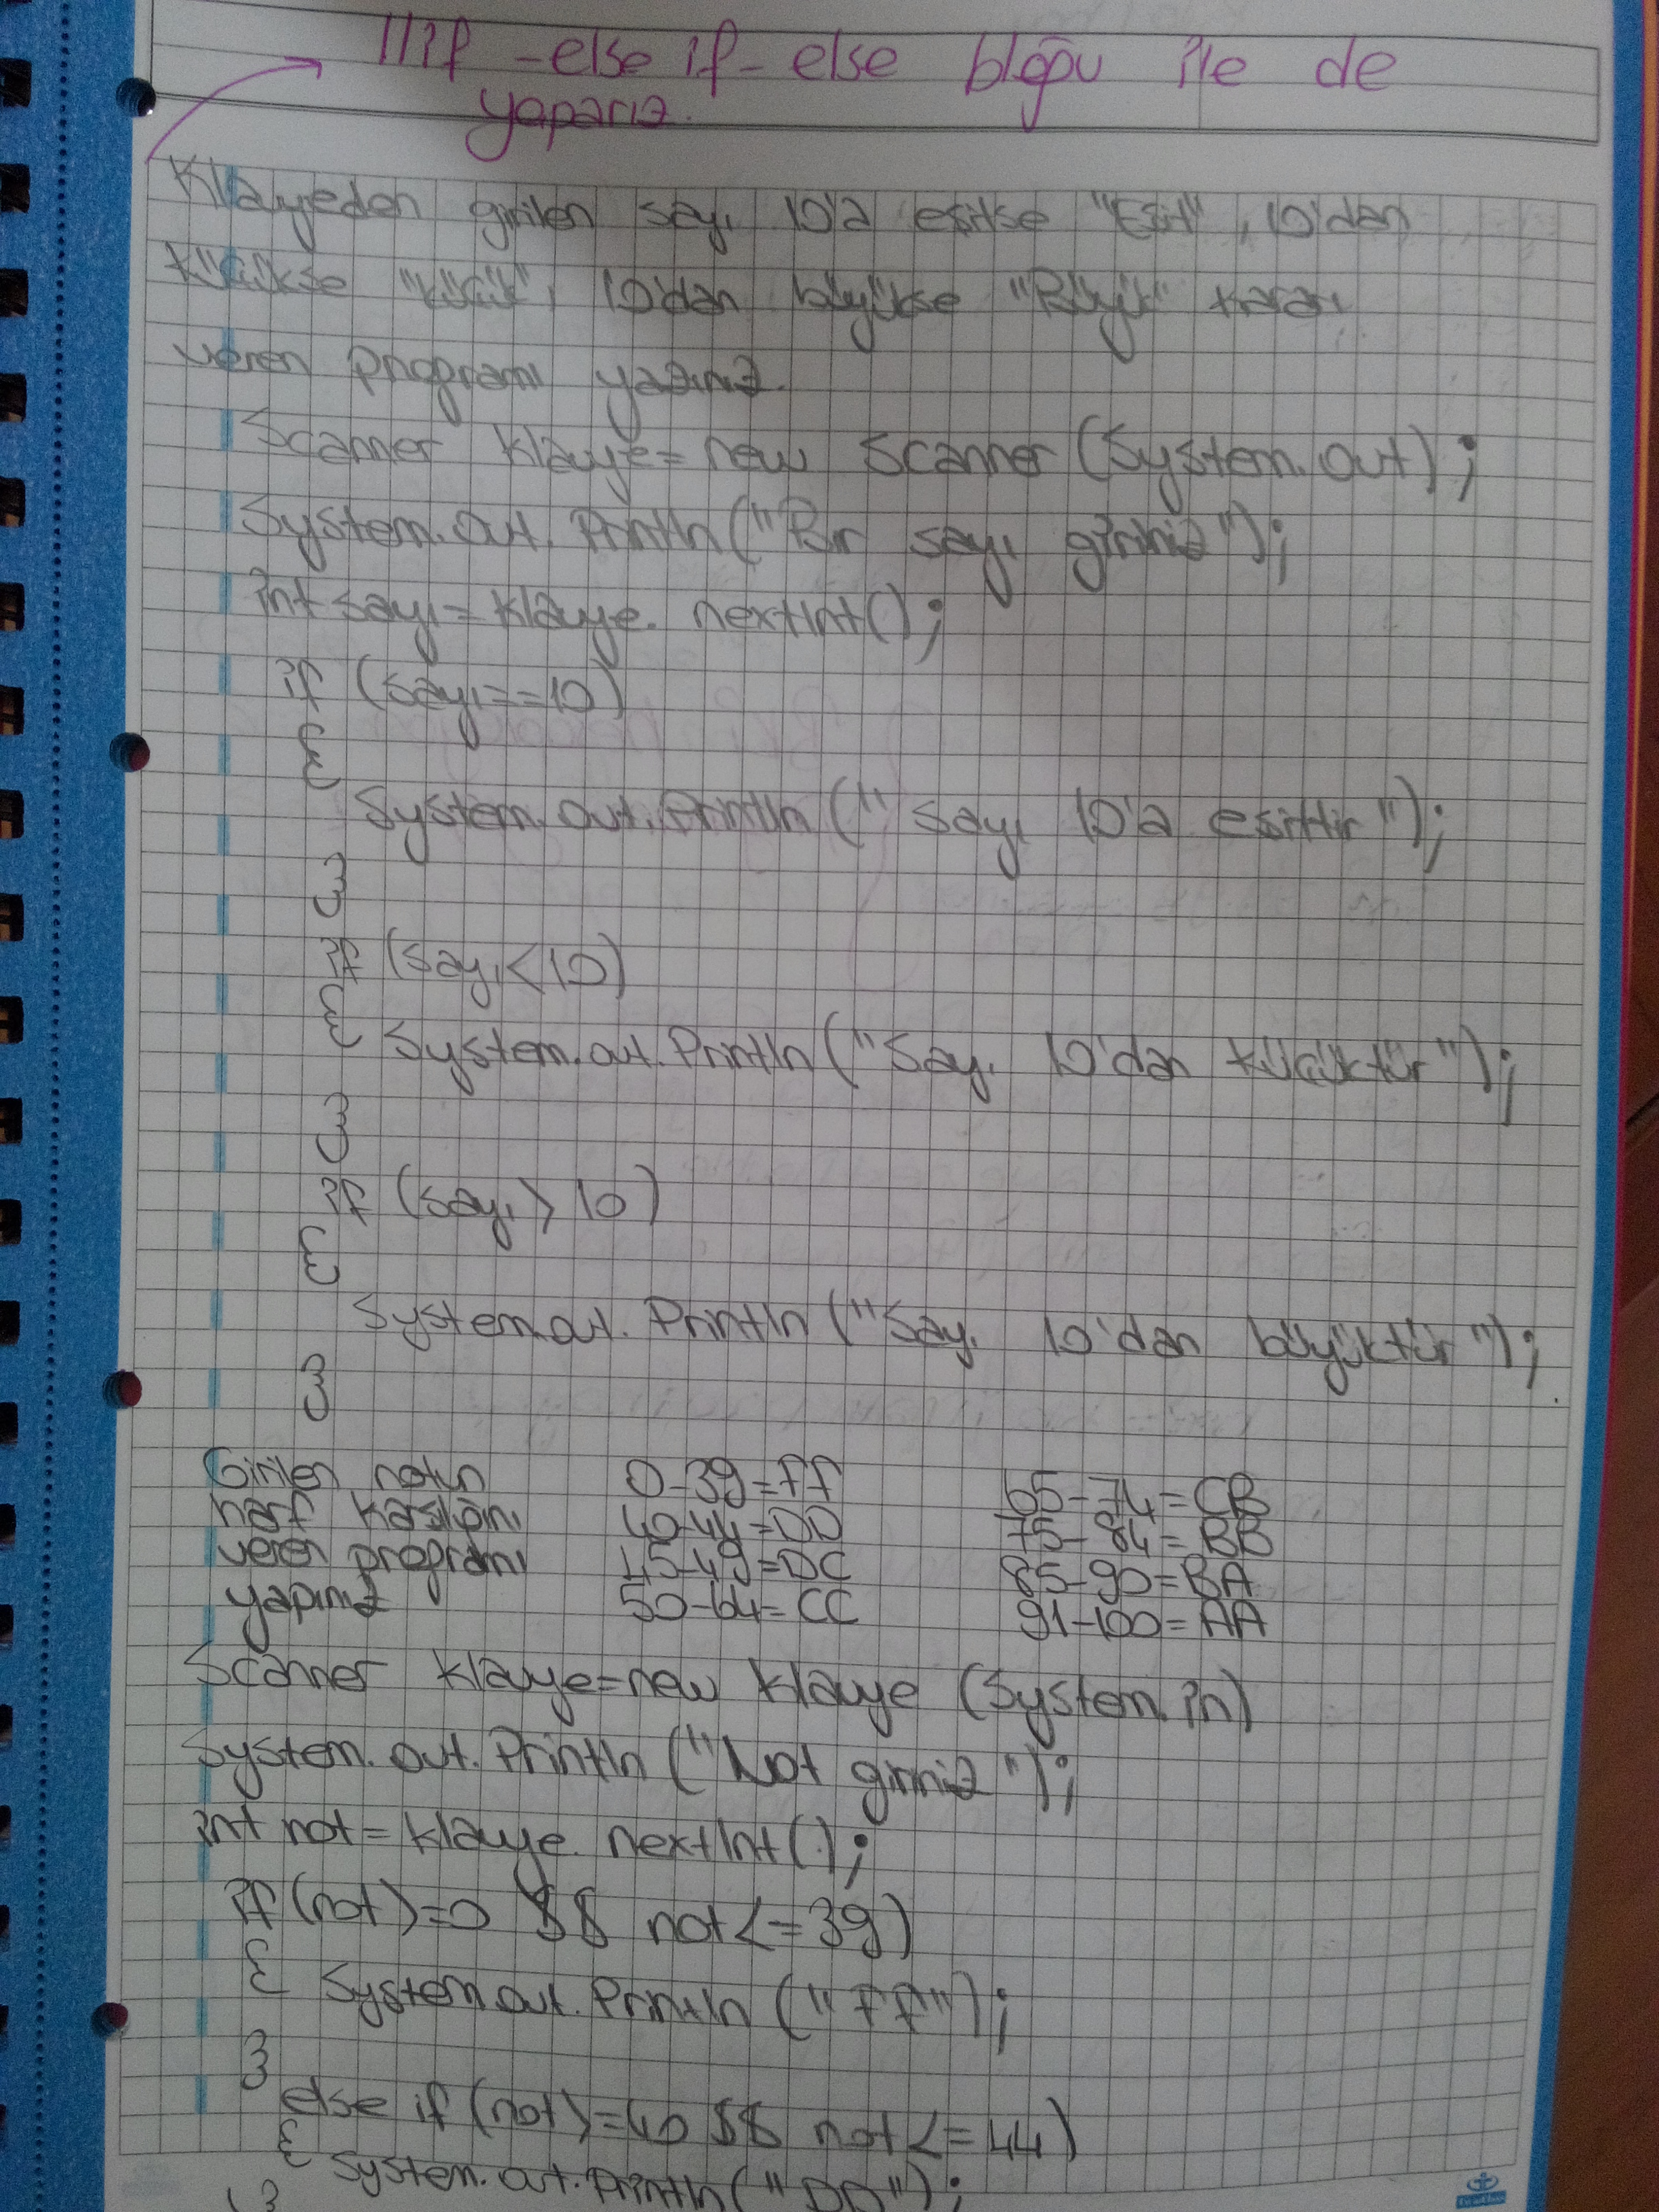 //if - else if - else bloğu ile de
yaparız.
Klavyeden girilen sayı 10'a eşitse "Eşit", 10'dan
küçükse "küçük", 10'dan büyükse "Büyük" kararı
veren programı yazınız.
Scanner klavye = new Scanner (System.out);
System.out.Println("Bir sayı giriniz");
int sayı = klavye. nextInt();
if (sayı==10)
{
System.out.Println (" sayı 10'a eşittir ");
}
if (sayı<10)
{ System.out.Println ("Sayı 10'dan küçüktür");
}
if (sayı > 10)
{
System.out. Println ("Sayı 10'dan büyüktür");
}
Girilen notun 0-39=FF 65-74=CB
harf karşılığını 40-44=DD 75-84=BB
veren programı 45-49=DC 85-90=BA
yapınız 50-64=CC 91-100=AA
Scanner klavye=new klavye (System.in)
System.out.Println ("Not giriniz");
int not = klavye. nextInt();
if (not>=0 && not<=39)
{ System.out.Println ("FF");
}
else if (not>=40 && not<=44)
{ System.out.Println("DD");
}